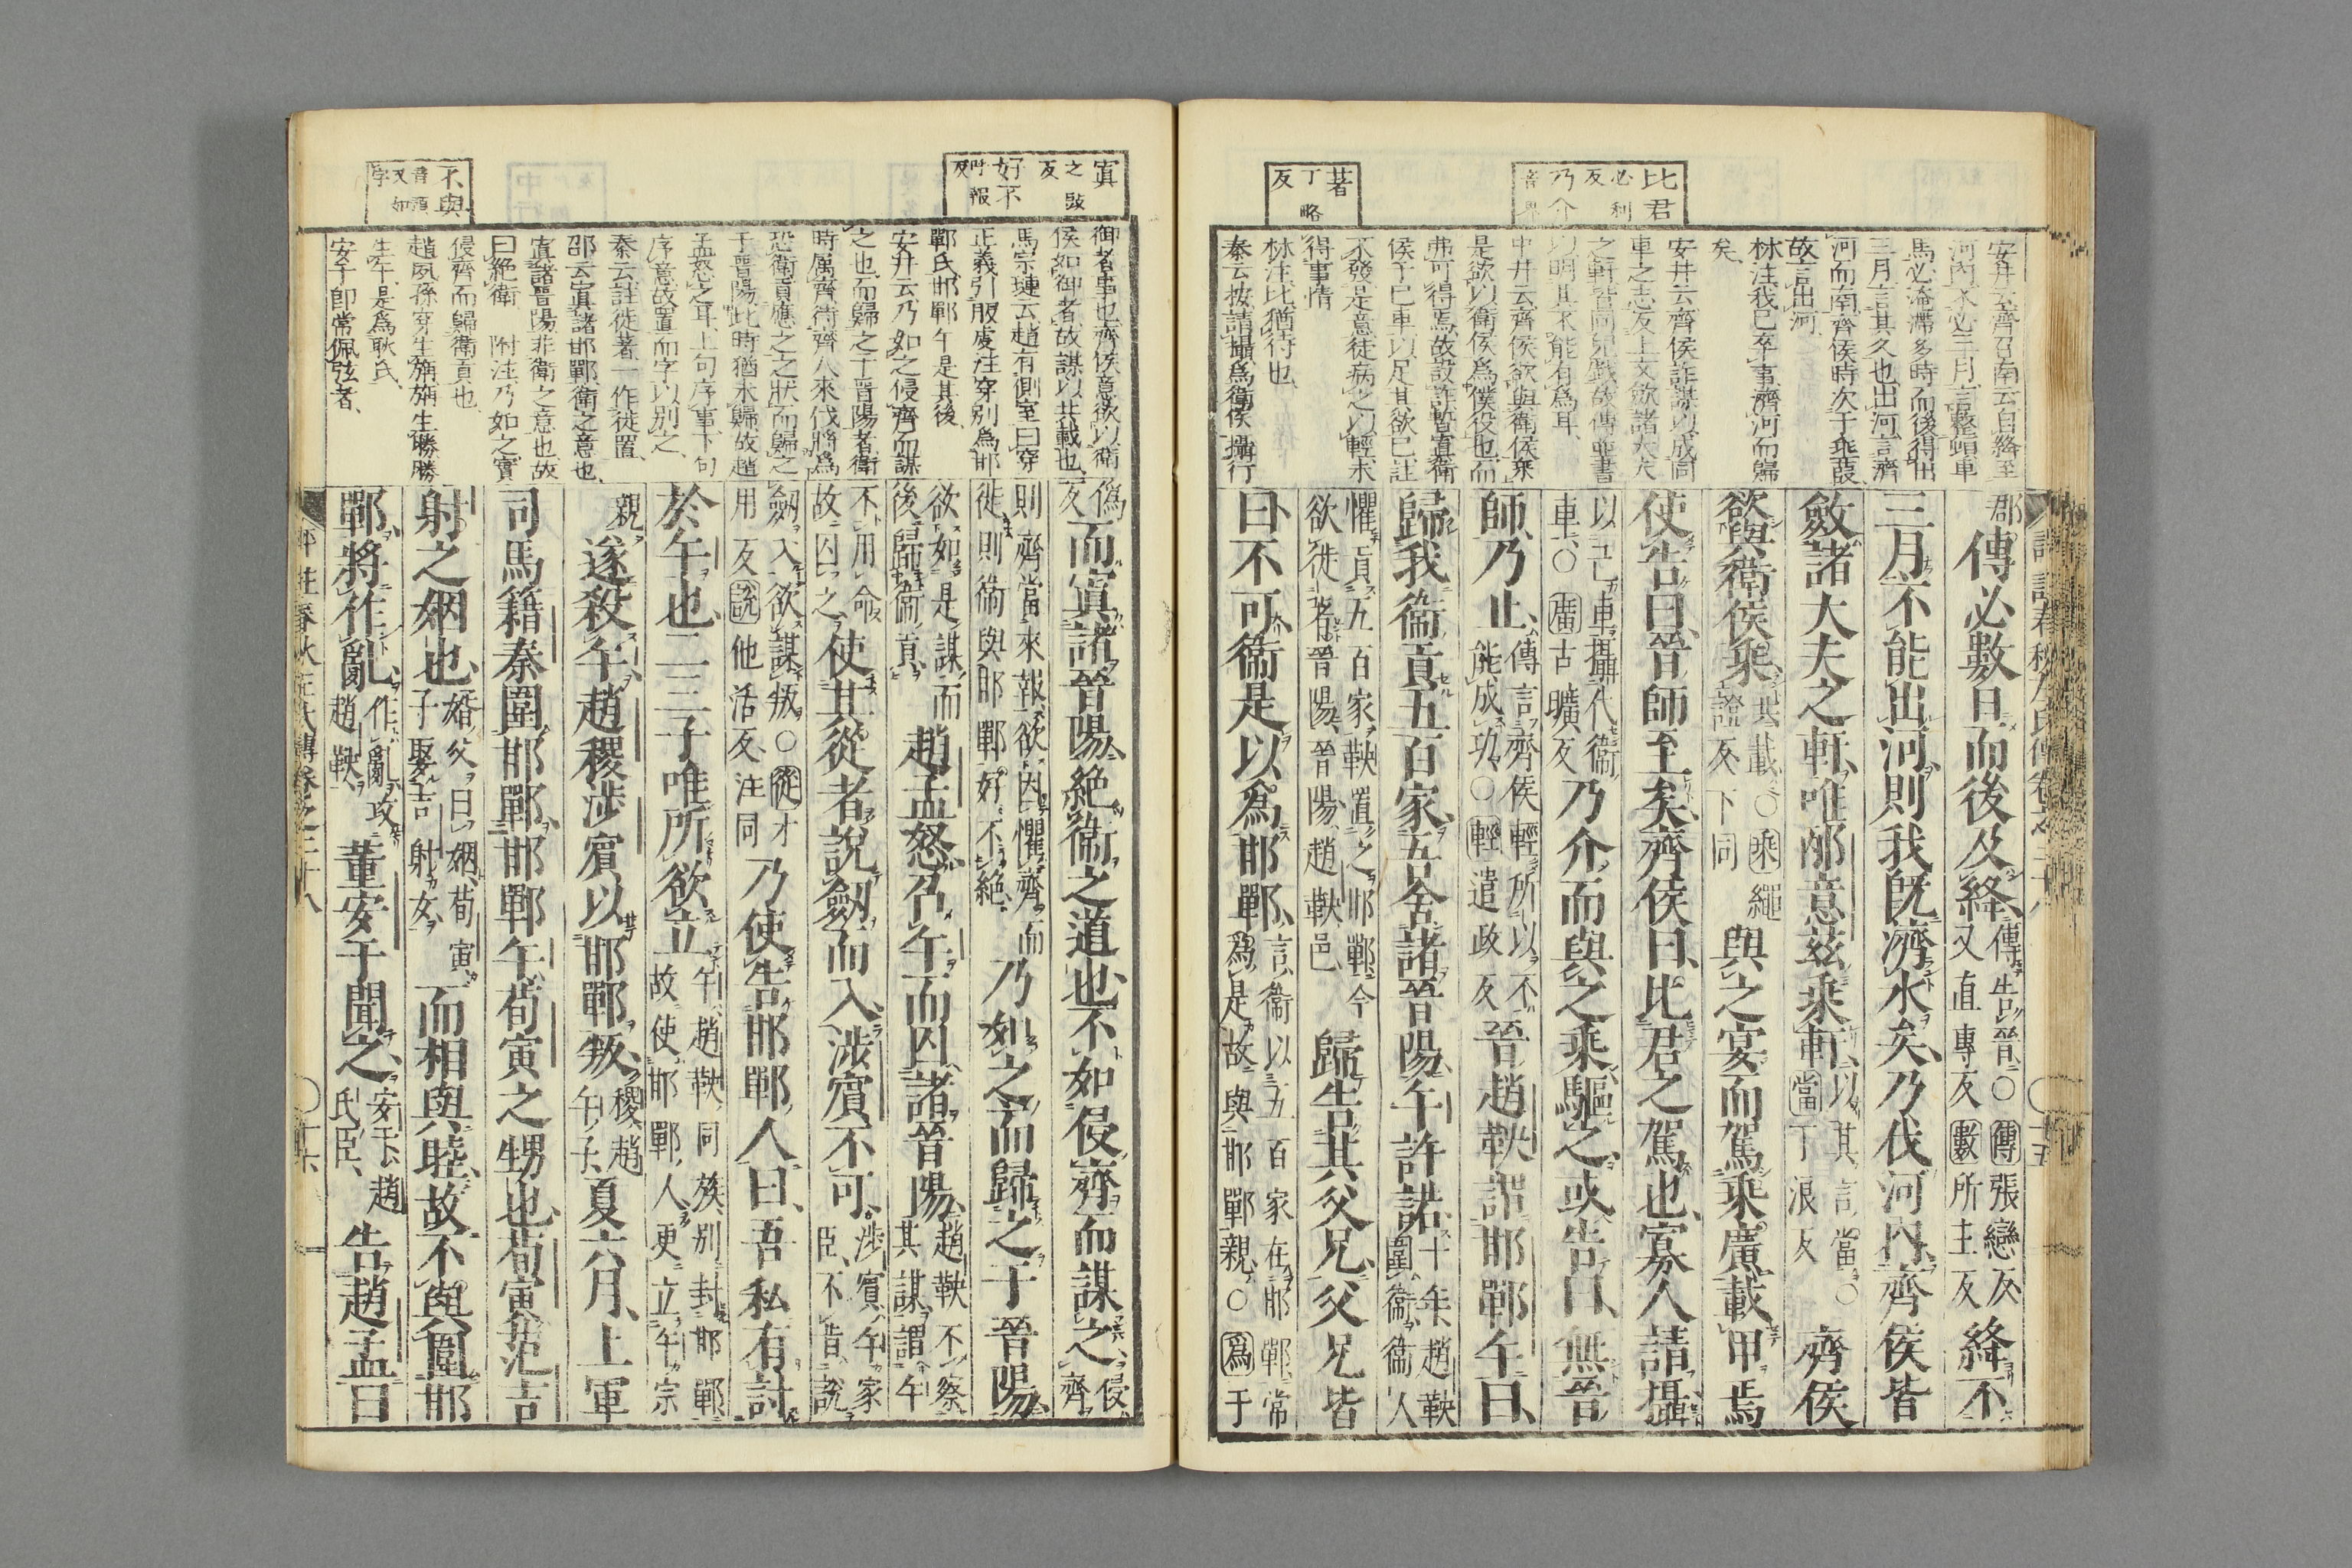 比君
必利
反
乃介
音界
著
丁略
反
安井云齊召南云自絳至
河内不必三月言整頓車
馬必淹滯多時而後得出
三月言其久也出河言濟
河而南齊侯時次于垂葭
故言出河
林注我已卒事濟河而歸
矣
安井云齊侯詐謀以成同
車之志反上文欲諸大夫
之軒皆同兒戲故傳
以明其不能有爲耳
中井云齊侯欲與衛侯乘
是欲以衛侯爲僕役也而
弗可得焉故設詐暫寘衛
侯于己車以足其欲已註
不發是意徒病之以輕未
得事情
林注比猶待也
秦云按請攝爲衛侯攝行
郡傳必數日而後及絳傳告晉○傳張戀反
又直專反數所主反絳不
三月不能出河則我既濟水矣乃伐河内齊侯皆
斂諸大夫之軒唯邴意茲乘軒以其言當○
當丁浪反齊侯
欲與衛侯乘共載○乘繩
證反下同與之宴而駕乘廣載甲焉
使告曰晉師至矣齊侯曰比君之駕也寡人請攝
以己車攝代衛
車○廣古曠反乃介而與之乘驅之或告曰無晉
師乃止傳言齊侯輕所以不
能成功○輕遣政反晉趙鞅謂邯鄲午曰
歸我衛貢五百家吾舍諸晉陽午許諾十年趙鞅
圍衛衛人
懼貢五百家鞅置之邯鄲今
欲徙著晉陽晉陽趙鞅邑歸告其父兄父兄皆
曰不可衛是以爲邯鄲言衛以五百家在邯鄲常
爲是故與邯鄲親○爲于
寘
之豉
反
好不
呼報
反
不與
音預
又如
字
御者事也齊侯意欲以衛
侯如御者故謀以共載也
馬宗璉云趙有側室曰穿
正義引服虔注穿別爲邯
鄲氏邯鄲午是其後
安井云乃如之侵齊而謀
之也而歸之于晉陽者衛
時属齊衛齊人來伐將爲
恐衛貢應之之狀而歸之
于晉陽此時猶未歸故趙
孟怒之耳上句序事下句
序意故置而字以別之
秦云註徙著一作徙置
邵云寘諸邯鄲衛之意也
寘諸晉陽非衛之意也故
曰絶衛 附注乃如之實
侵齊而歸衛貢也
趙夙孫穿生旃旃生勝勝
生午是爲耿氏
安于即常佩弦者
僞
反而寘諸晉陽絶衛之道也不如侵齊而謀之侵
齊
則齊當來報欲因懼齊而
徙則衛與邯鄲好不絶乃如之而歸之于晉陽
欲如是謀而
後歸衛貢趙孟怒召午而囚諸晉陽趙鞅不察
其謀謂午
不用命
故囚之使其從者說劔而入涉賓不可涉賓午家
臣不肯說
劔入欲謀叛○從才
用反說他活反注同乃使告邯鄲人曰吾私有討
於午也二三子唯所欲立午趙鞅同族別封邯鄲
故使邯鄲人更立午宗
親遂殺午趙稷涉賓以邯鄲叛稷趙
午子夏六月上軍
司馬籍秦圍邯鄲邯鄲午荀寅之甥也荀寅范吉
射之姻也婚父曰姻荀寅
子娶吉射女而相與睦故不與圍邯
鄲將作亂作亂攻
趙鞅董安于聞之安于趙
氏臣告趙孟曰